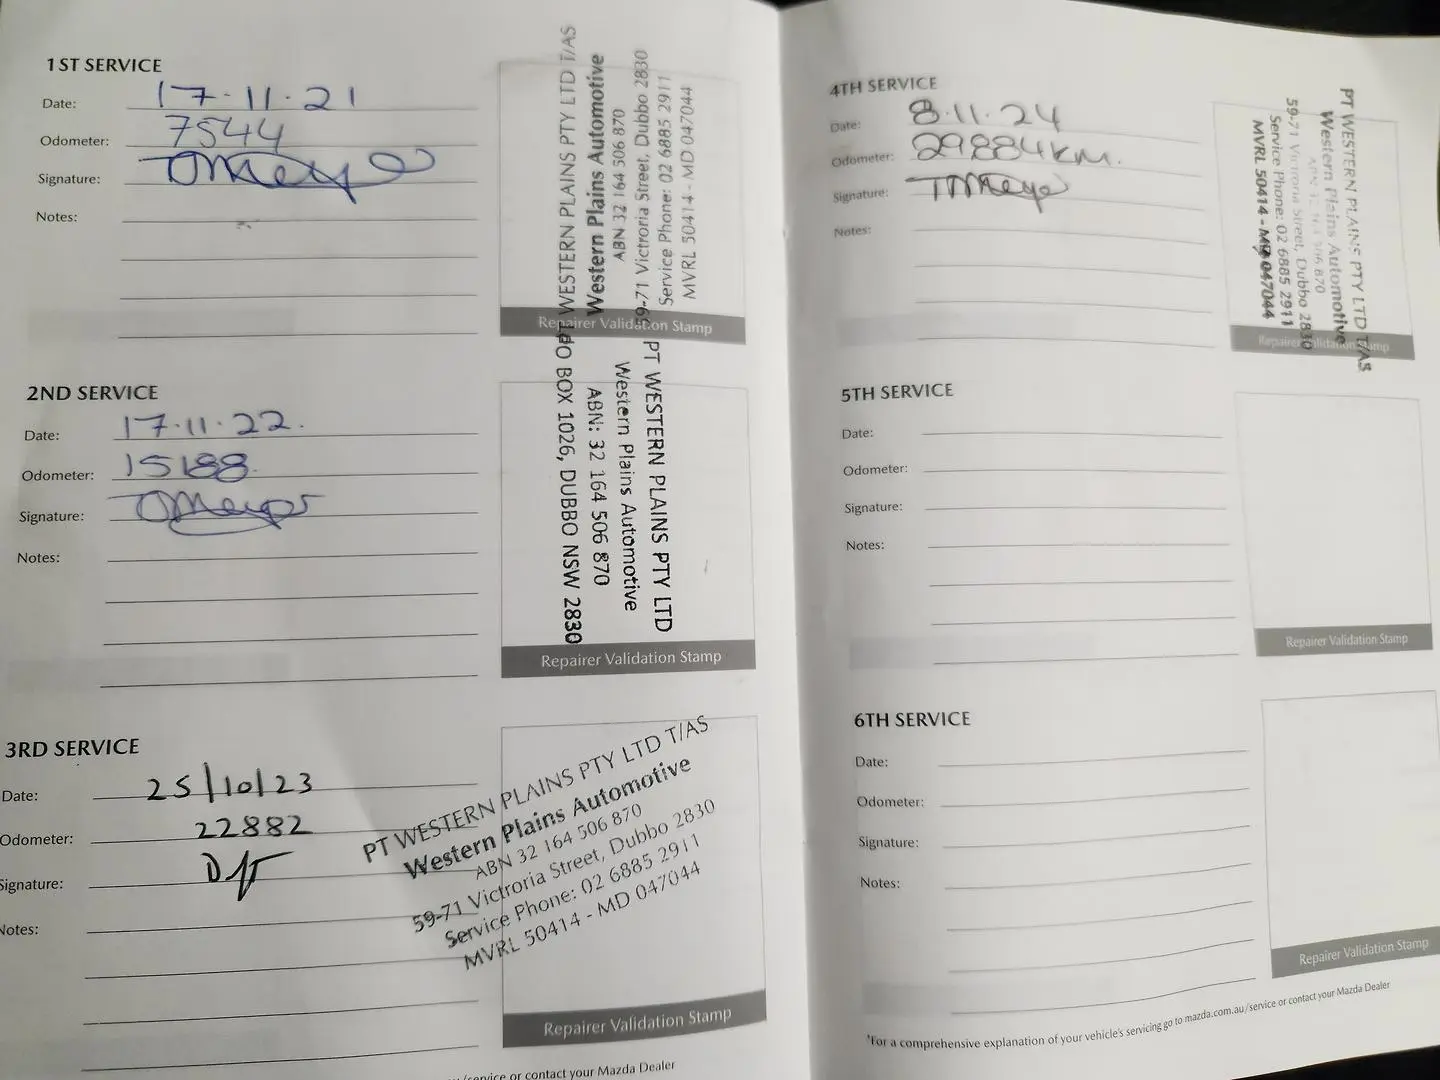 1ST SERVICE
Date: 17.11.21
Odometer: 7544
Signature:
Notes:
PT WESTERN PLAINS PTY LTD T/AS
Western Plains Automotive
ABN 32 164 506 870
59-71 Victroria Street, Dubbo 2830
Service Phone: 02 6885 2911
MVRL 50414 - MD 047044
Repairer Validation Stamp
2ND SERVICE
Date: 17.11.22.
Odometer: 15188.
Signature:
Notes:
PT WESTERN PLAINS PTY LTD
Western Plains Automotive
ABN: 32 164 506 870
PO BOX 1026, DUBBO NSW 2830
Repairer Validation Stamp
3RD SERVICE
Date: 25/10/23
Odometer: 22882
Signature:
Notes:
PT WESTERN PLAINS PTY LTD T/AS
Western Plains Automotive
ABN 32 164 506 870
59-71 Victroria Street, Dubbo 2830
Service Phone: 02 6885 2911
MVRL 50414 - MD 047044
Repairer Validation Stamp
/service or contact your Mazda Dealer
4TH SERVICE
Date: 8.11.24
Odometer: 29884km.
Signature:
Notes:
PT WESTERN PLAINS PTY LTD T/AS
Western Plains Automotive
ABN 32 164 506 870
59-71 Victroria Street, Dubbo 2830
Service Phone: 02 6885 2911
MVRL 50414 - MD 047044
Repairer Validation Stamp
5TH SERVICE
Date:
Odometer:
Signature:
Notes:
Repairer Validation Stamp
6TH SERVICE
Date:
Odometer:
Signature:
Notes:
Repairer Validation Stamp
*For a comprehensive explanation of your vehicle's servicing go to mazda.com.au/service or contact your Mazda Dealer